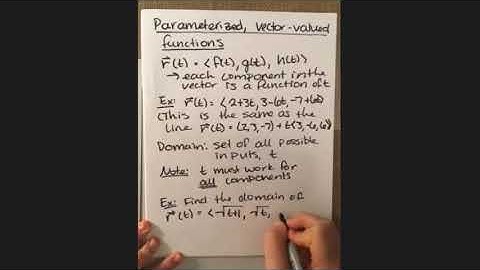 Parameterized, vector-valued
functions
r⃗(t) = ⟨f(t), g(t), h(t)⟩
→ each component in the
vector is a function of t
Ex: r⃗(t) = ⟨2+3t, 3-6t, -7+6t⟩
(This is the same as the
line r⃗(t) = (2,3,-7) + t⟨3,-6,6⟩)
Domain: set of all possible
inputs, t
Note: t must work for
all components
Ex: Find the domain of
r⃗(t) = ⟨√t+1, √t,